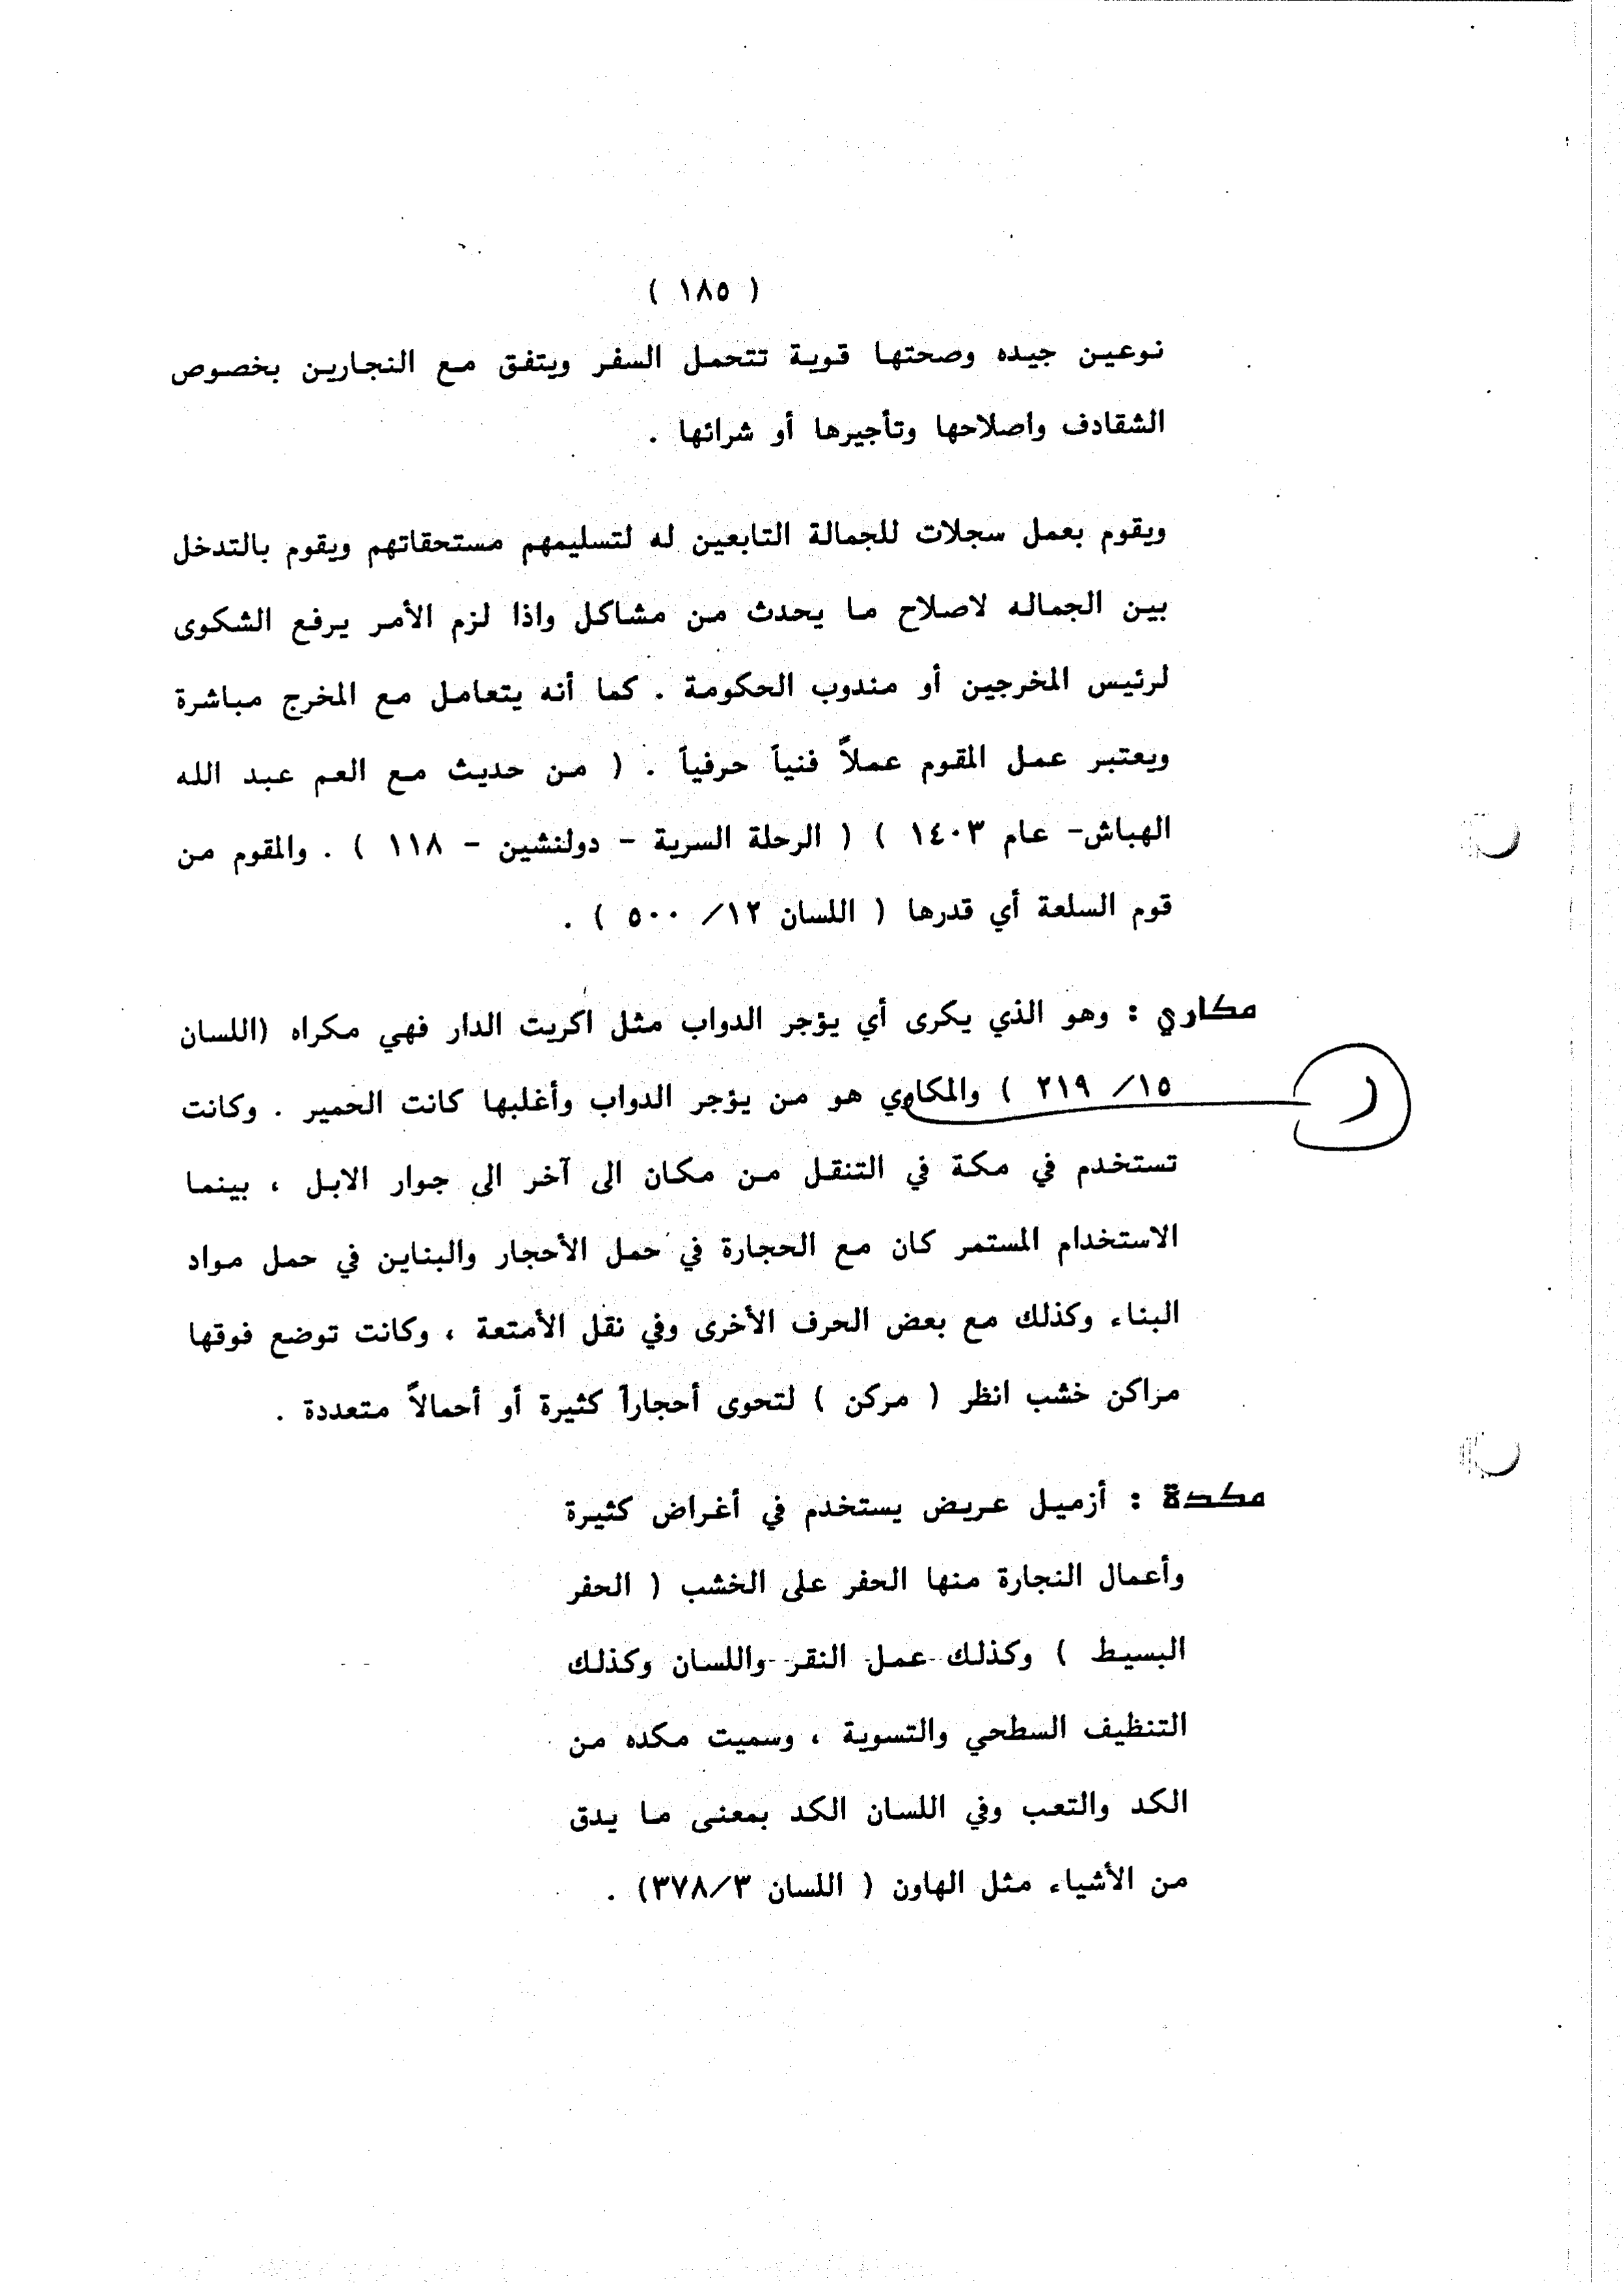 ( ١٨٥ )
نوعين جيده وصحتها قوية تتحمل السفر ويتفق مع النجارين بخصوص
الشقادف واصلاحها وتأجيرها أو شرائها .
ويقوم بعمل سجلات للجمالة التابعين له لتسليمهم مستحقاتهم ويقوم بالتدخل
بين الجماله لاصلاح ما يحدث من مشاكل واذا لزم الأمر يرفع الشكوى
لرئيس المخرجين أو مندوب الحكومة . كما أنه يتعامل مع المخرج مباشرة
ويعتبر عمل المقوم عملاً فنياً حرفياً . ( من حديث مع العم عبد الله
الهباش- عام ١٤٠٣ ) ( الرحلة السرية - دولنشين - ١١٨ ) . والمقوم من
قوم السلعة أي قدرها ( اللسان ١٢/ ٥٠٠ ) .
مكاري : وهو الذي يكرى أي يؤجر الدواب مثل اكريت الدار فهي مكراه (اللسان
١٥/ ٢١٩ ) والمكاوي هو من يؤجر الدواب وأغلبها كانت الحمير . وكانت
ر
تستخدم في مكة في التنقل من مكان الى آخر الى جوار الابل ، بينما
الاستخدام المستمر كان مع الحجارة في حمل الأحجار والبناين في حمل مواد
البناء وكذلك مع بعض الحرف الأخرى وفي نقل الأمتعة ، وكانت توضع فوقها
مراكن خشب انظر ( مركن ) لتحوى أحجاراً كثيرة أو أحمالاً متعددة .
مكدة : أزميل عريض يستخدم في أغراض كثيرة
وأعمال النجارة منها الحفر على الخشب ( الحفر
البسيط ) وكذلك عمل النقر واللسان وكذلك
التنظيف السطحي والتسوية ، وسميت مكده من
الكد والتعب وفي اللسان الكد بمعنى ما يدق
من الأشياء مثل الهاون ( اللسان ٣٧٨/٣) .